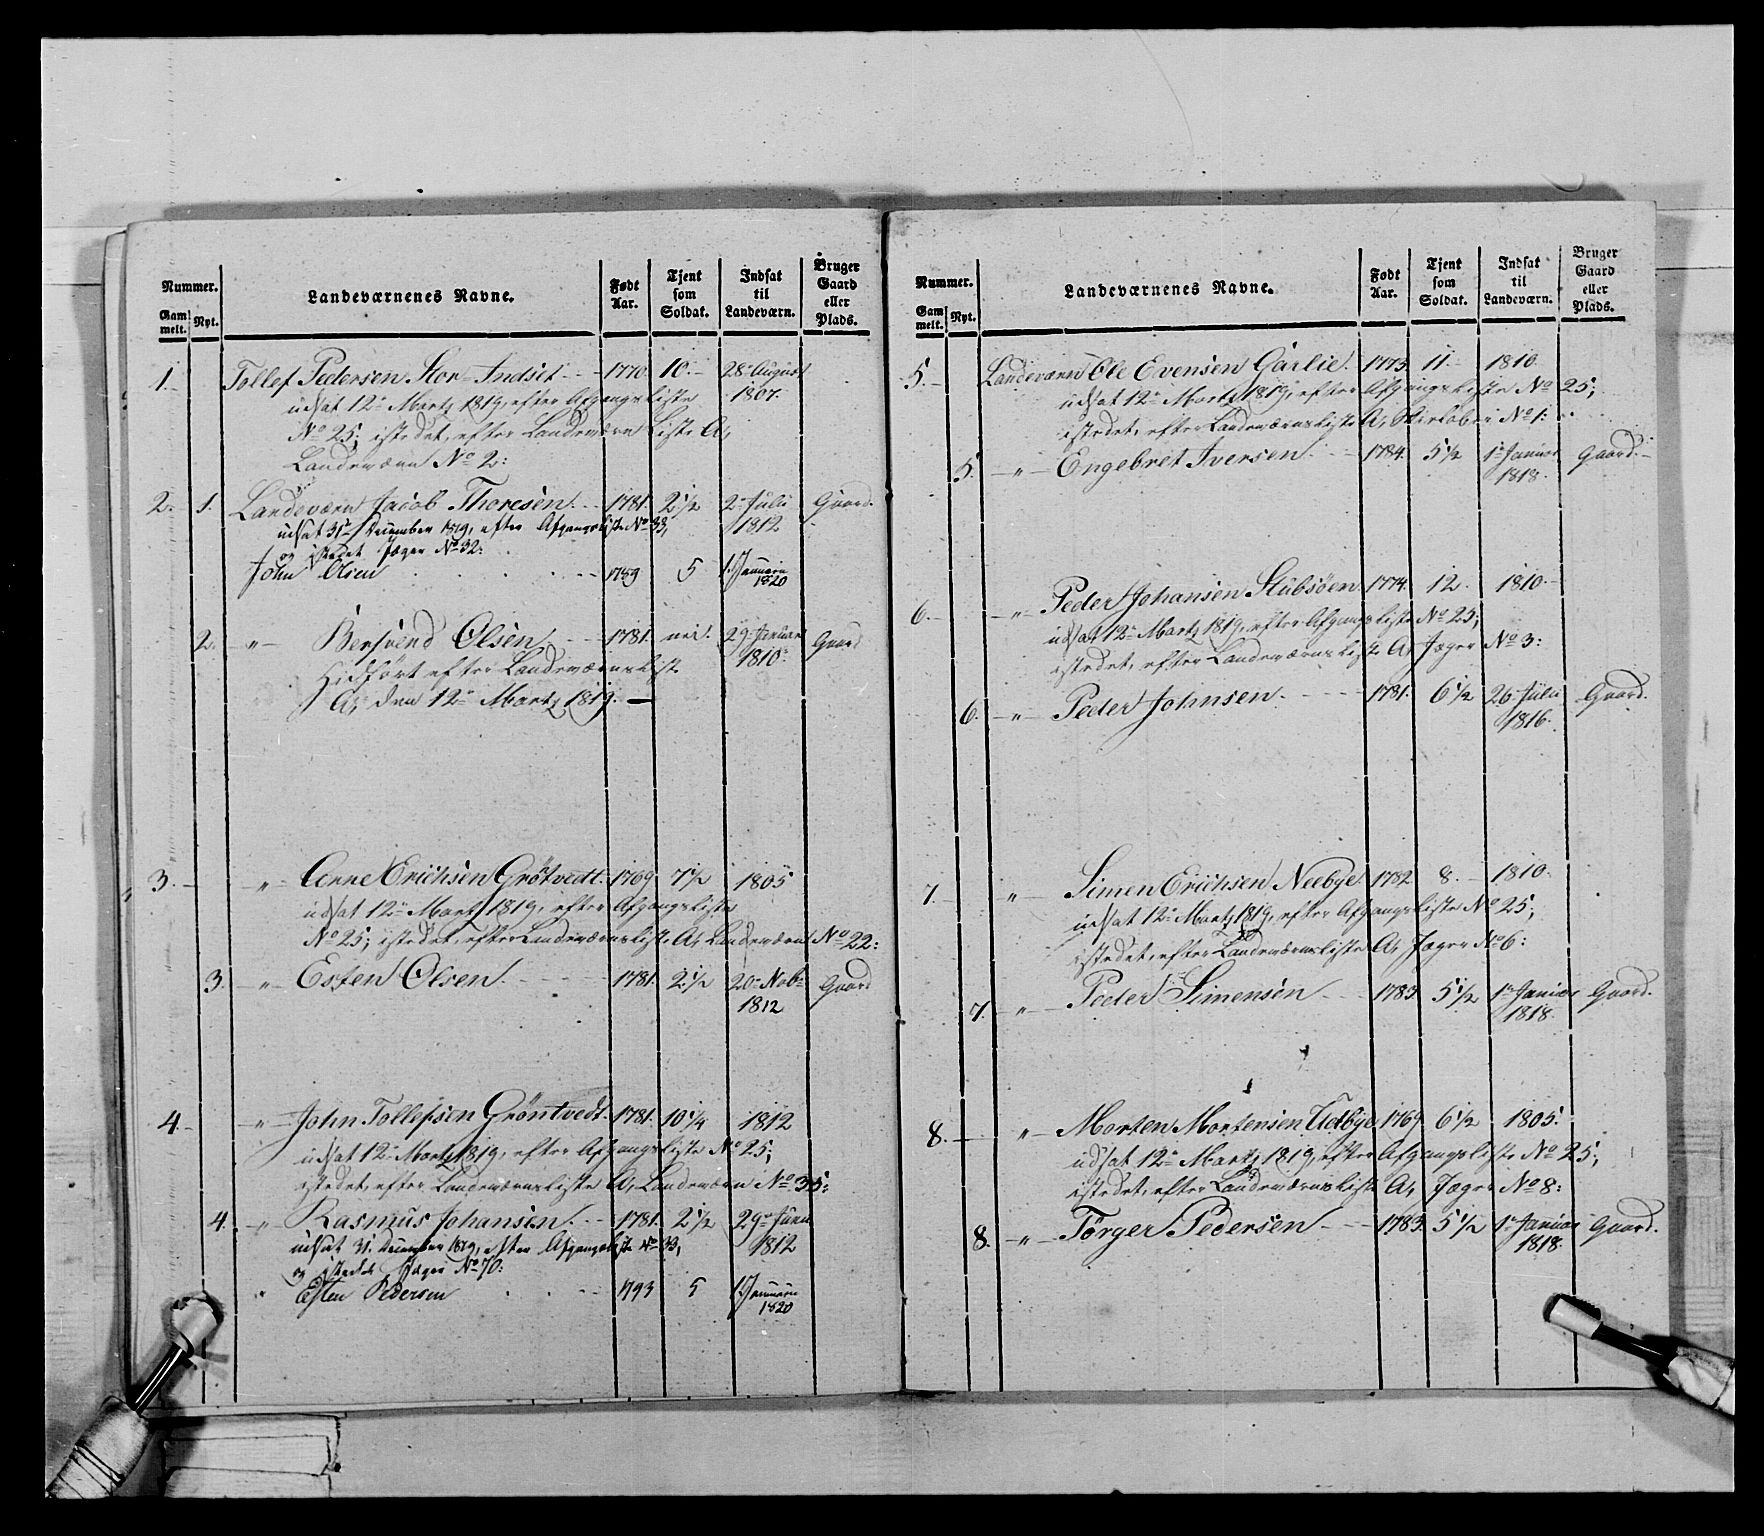 Nummer.
Gam
melt.
Nyt.
Landeværnenes Navne.
Født
Aar.
Tjent
som
Soldat.
Indsat
til
Landeværn.
Bruger
Gaard
eller
Plads.
1. Tollef Pedersen Stor-Indset 1770. 10. 28de August
1807.
udsat 12te Martz 1819, efter Afgangsliste
No 25; istedet, efter Landeværnsliste A,
Landeværn No 2:
2. 1. Landeværn Jacob Thoresen 1781. 2 1/2 2de Julii Gaard.
1812
udsat 31te December 1819, efter Afgangsliste No 33,
og istedet Jæger No 32:
John Olsen 1789 5 1. Januarii
1820
2. " Bersvend Olsen 1781. nei. 29de Januar Gaard
1810.
Hidført efter Landeværnsliste
A, den 12te Martz 1819.
3. " Arne Erichsen Grötvedt. 1769 7 1/2 1805
udsat 12te Martz 1819, efter Afgangsliste
No 25; istedet, efter Landeværnsliste A, Landeværn No 22:
3. " Esten Olsen 1781. 2 1/2 20de Nobr Gaard
1812
4. " John Tollefsen Gröntvedt. 1781. 10 1/4 1812
udsat 12te Martz 1819, efter Afgangsliste No 25;
istedet, efter Landeværnsliste A, Landeværn No 35:
4. " Rasmus Johansen 1781. 2 1/2 29de Junii
1812
udsat 31. December 1819, efter Afgangsliste No 33,
og istedet Jæger No 70:
" Esten Pedersen 1793 5 1. Januarii
1820
Nummer.
Gam
melt.
Nyt.
Landeværnenes Navne.
Født
Aar.
Tjent
som
Soldat.
Indsat
til
Landeværn.
Bruger
Gaard
eller
Plads.
5. Landeværn Ole Evensen Garlie. 1773. 11. 1810.
udsat 12te Martz 1819, efter Afgangsliste No 25;
istedet, efter Landeværnsliste A, Skieløber No 1:
5. " Engebret Iversen 1784. 5 1/2 1te Januar Gaard.
1818.
6. " Peder Johansen Stubsöen 1774. 12. 1810.
udsat 12te Martz 1819, efter Afgangsliste No 25;
istedet, efter Landeværnsliste A, Jæger No 3:
6. " Peder Johnsen 1781. 6 1/2 26de Julii Gaard.
1816.
7. " Simen Erichsen Neebye 1782 8. 1810.
udsat 12te Martz 1819, efter Afgangsliste No 25;
istedet, efter Landeværnsliste A, Jæger No 6:
7. " Peder Simensen 1783 5 1/2 1te Januar Gaard.
1818.
8. " Morten Mortensen Udbye 1769 6 1/2 1805.
udsat 12te Martz 1819, efter Afgangsliste No 25;
istedet, efter Landeværnsliste A, Jæger No 8:
8. " Törger Pedersen 1783. 5 1/2 1te Januar Gaard.
1818.